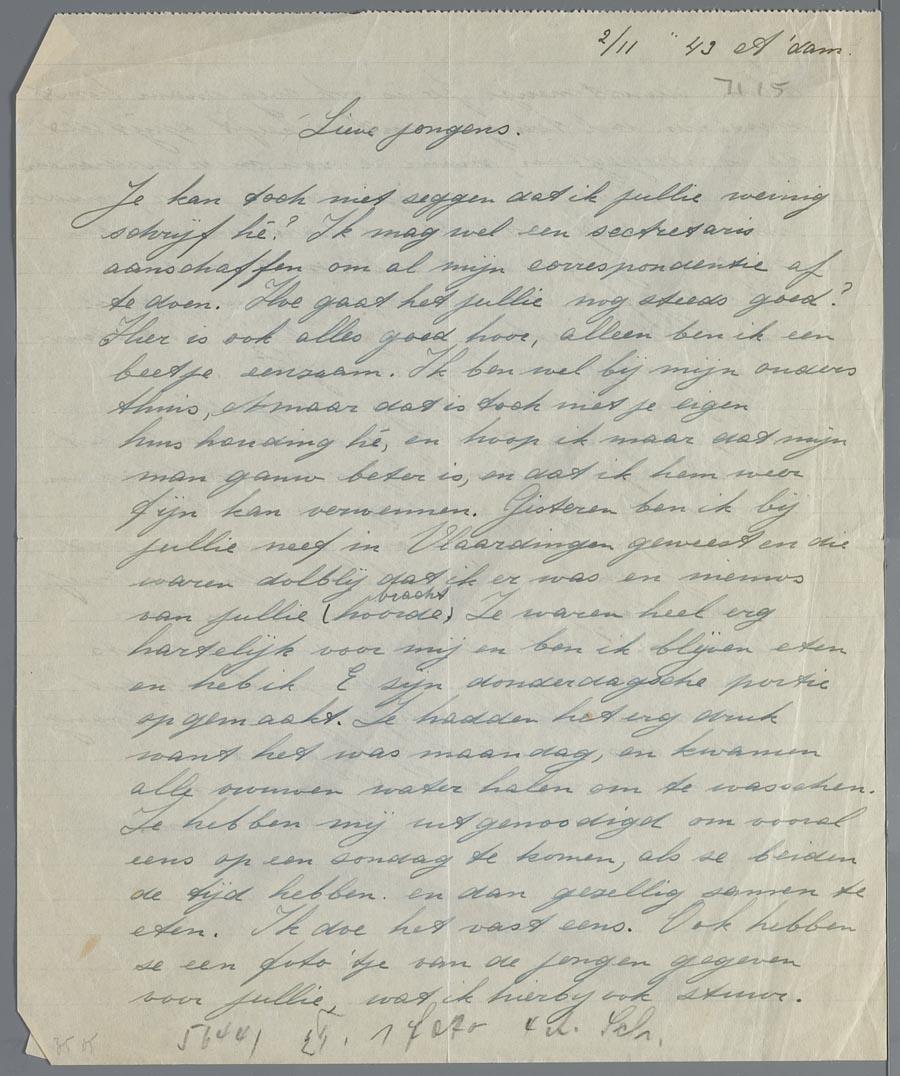 2/11 "43 A'dam.
7115
Lieve jongens.
Je kan toch niet zeggen dat ik jullie weinig
schrijf hé? Ik mag wel een sectretaris
aanschaffen om al mijn correspondentie af
te doen. Hoe gaat het jullie nog steeds goed?
Hier is ook alles goed hoor, alleen ben ik een
beetje eenzaam. Ik ben wel bij mijn ouders
thuis, maar dat is toch niet je eigen
huishouding hé, en hoop ik maar dat mijn
man gauw beter is, en dat ik hem weer
fijn kan verwennen. Gisteren ben ik bij
jullie neef in Vlaardingen geweest en die
waren dolblij dat ik er was en nieuws
van jullie (hoorde) bracht Ze waren heel erg
hartelijk voor mij en ben ik blijven eten
en heb ik zijn donderdagsche portie
opgemaakt. Ze hadden het erg druk
want het was maandag, en kwamen
alle vrouwen water halen om te wasschen.
Ze hebben mij uitgenoodigd om vooral
eens op een zondag te komen, als ze beiden
de tijd hebben. en dan gezellig samen te
eten. Ik doe het vast eens. Ook hebben
ze een foto'tje van de jongen gegeven
voor jullie, wat ik hierbij ook stuur.
56441 1 foto